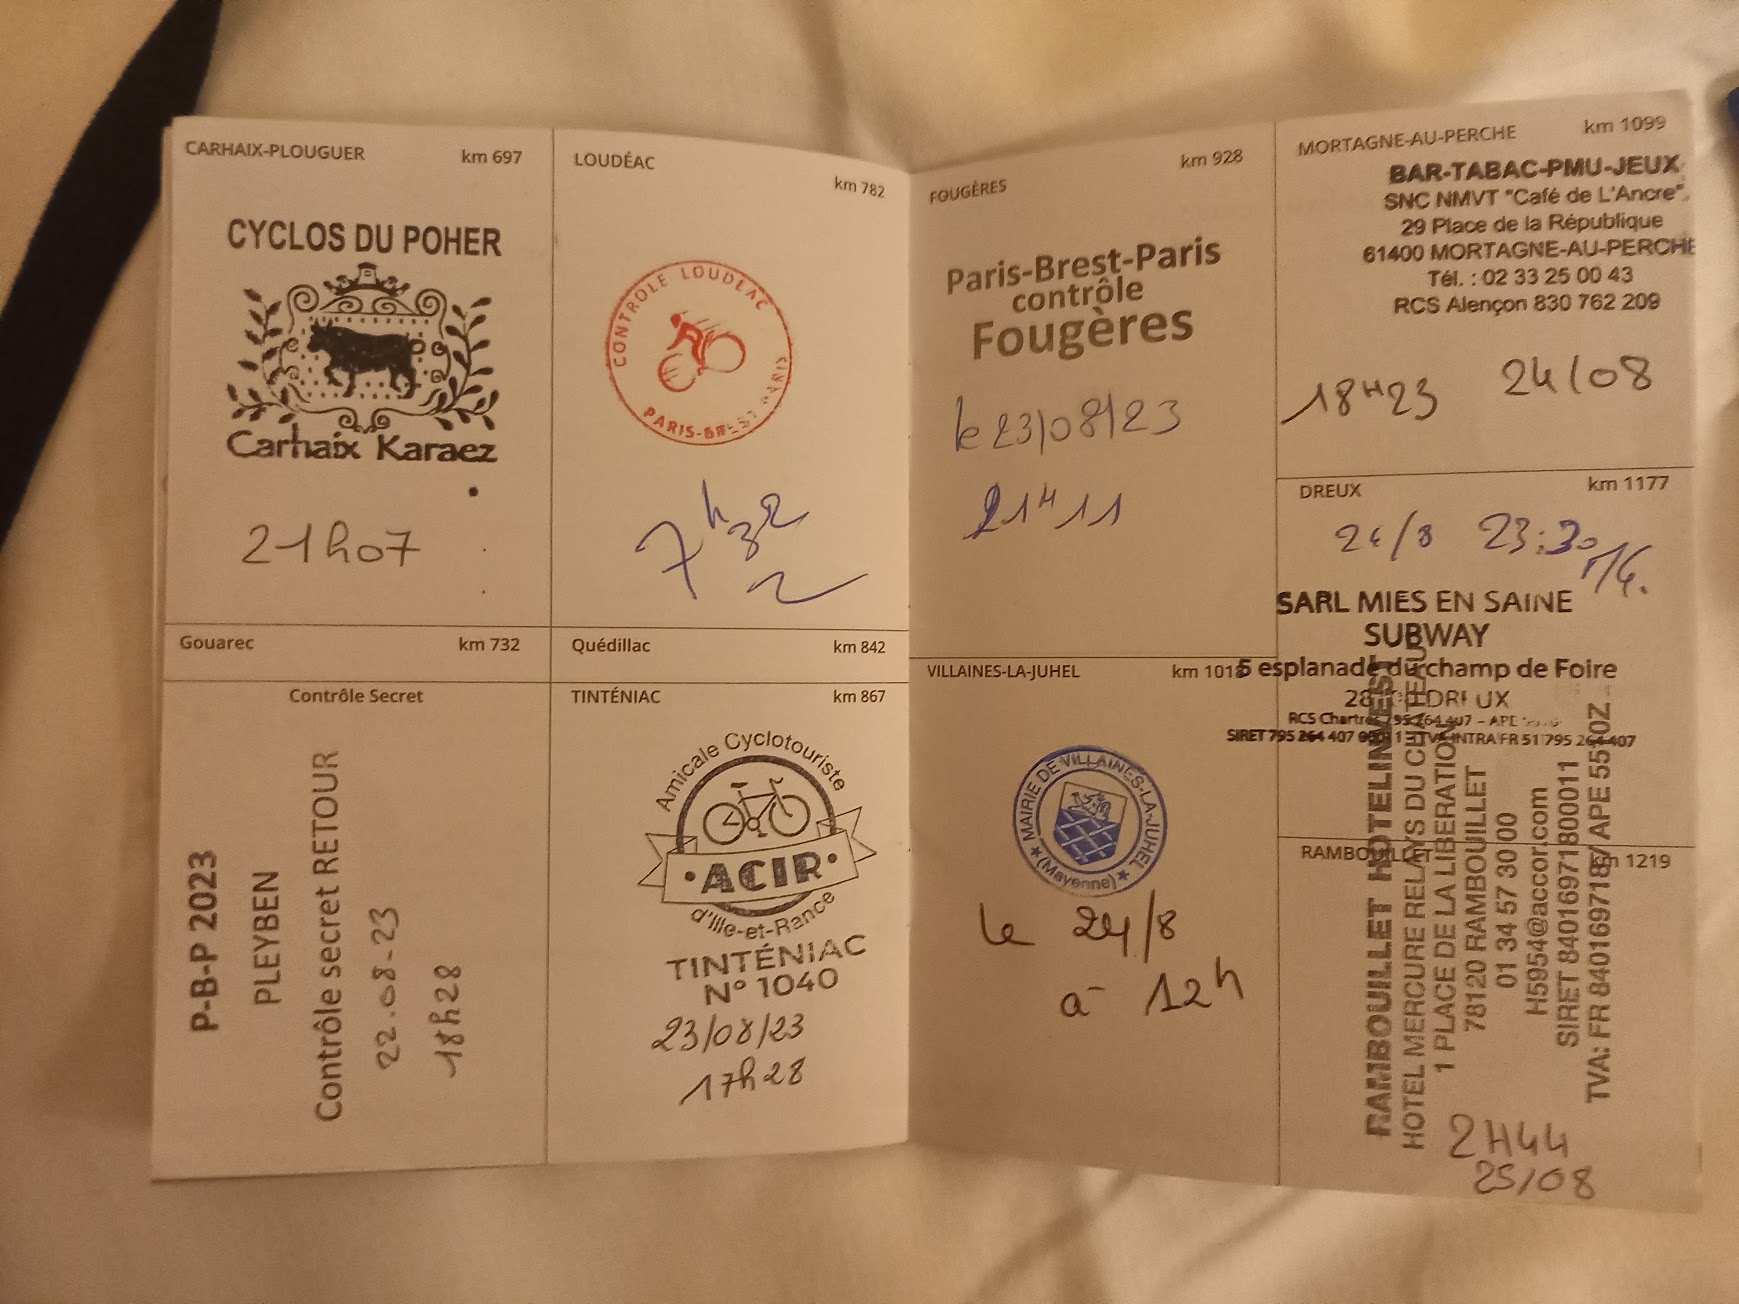 CARHAIX-PLOUGUER km 697
CYCLOS DU POHER
Carhaix Karaez
21h07
Gouarec km 732
Contrôle Secret
P-B-P 2023
PLEYBEN
Contrôle secret RETOUR
22.08-23
18h28
LOUDÉAC km 782
CONTROLE LOUDEAC
PARIS-BREST
7h32
Quédillac km 842
TINTÉNIAC km 867
Amicale Cyclotouriste
ACIR
d'Ille-et-Rance
TINTÉNIAC
N° 1040
23/08/23
17h28
FOUGÈRES km 928
Paris-Brest-Paris
contrôle
Fougères
le 23/08/23
21H11
VILLAINES-LA-JUHEL km 1018
MAIRIE DE VILLAINES-LA-JUHEL
(Mayenne)
le 24/8
à 12h
MORTAGNE-AU-PERCHE km 1099
BAR-TABAC-PMU-JEUX
SNC NMVT "Café de L'Ancre"
29 Place de la République
61400 MORTAGNE-AU-PERCHE
Tél. : 02 33 25 00 43
RCS Alençon 830 762 209
18H23 24/08
DREUX km 1177
24/8 23:30
SARL MIES EN SAINE
SUBWAY
5 esplanade du champ de Foire
DREUX
RCS Chartres 795 264 407 - APE
SIRET 795 264 407 TVA INTRA FR 51 795 264 407
RAMBOUILLET km 1219
RAMBOUILLET HOTELINVEST
HOTEL MERCURE RELAYS DU CHATEAU
1 PLACE DE LA LIBERATION
78120 RAMBOUILLET
01 34 57 30 00
H5954@accor.com
SIRET 84016971800011
TVA: FR 840169718/ APE 5510Z
2H44
25/08